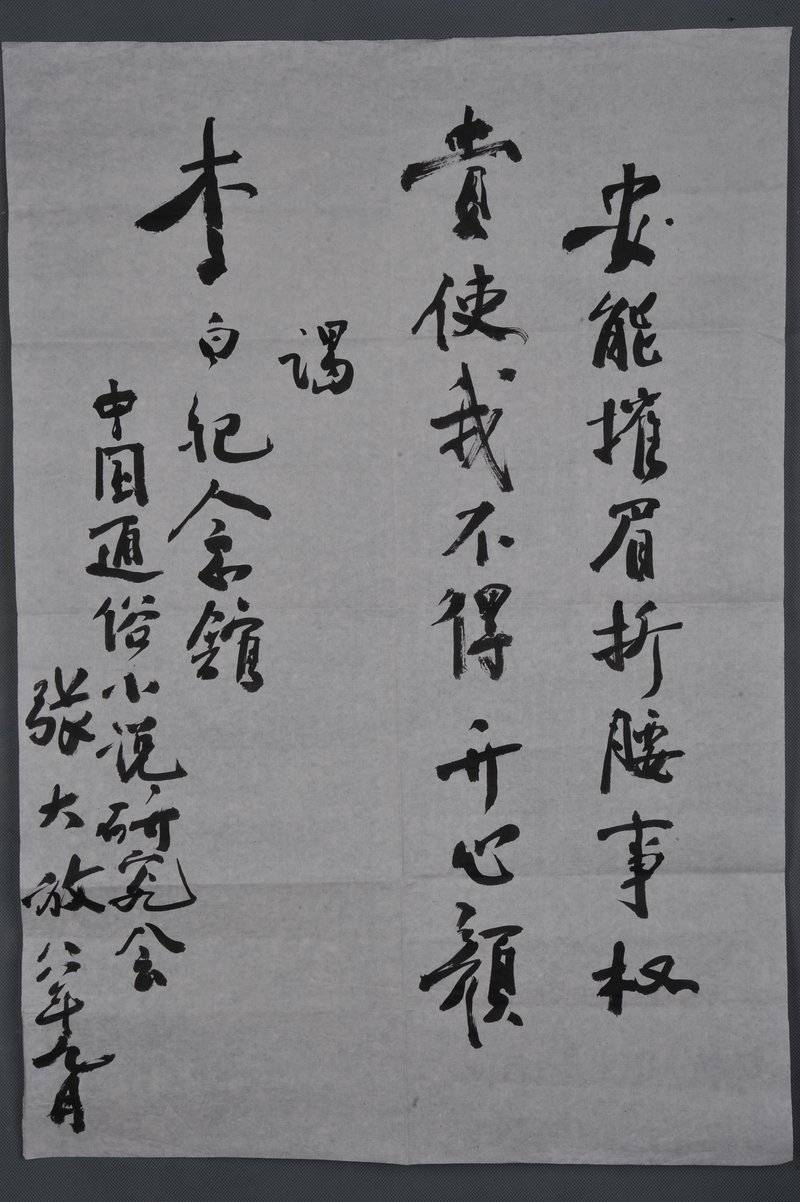 安能摧眉折腰事权
贵使我不得开心颜
谒
李白纪念馆
中国通俗小说研究会
张大放八八年九月